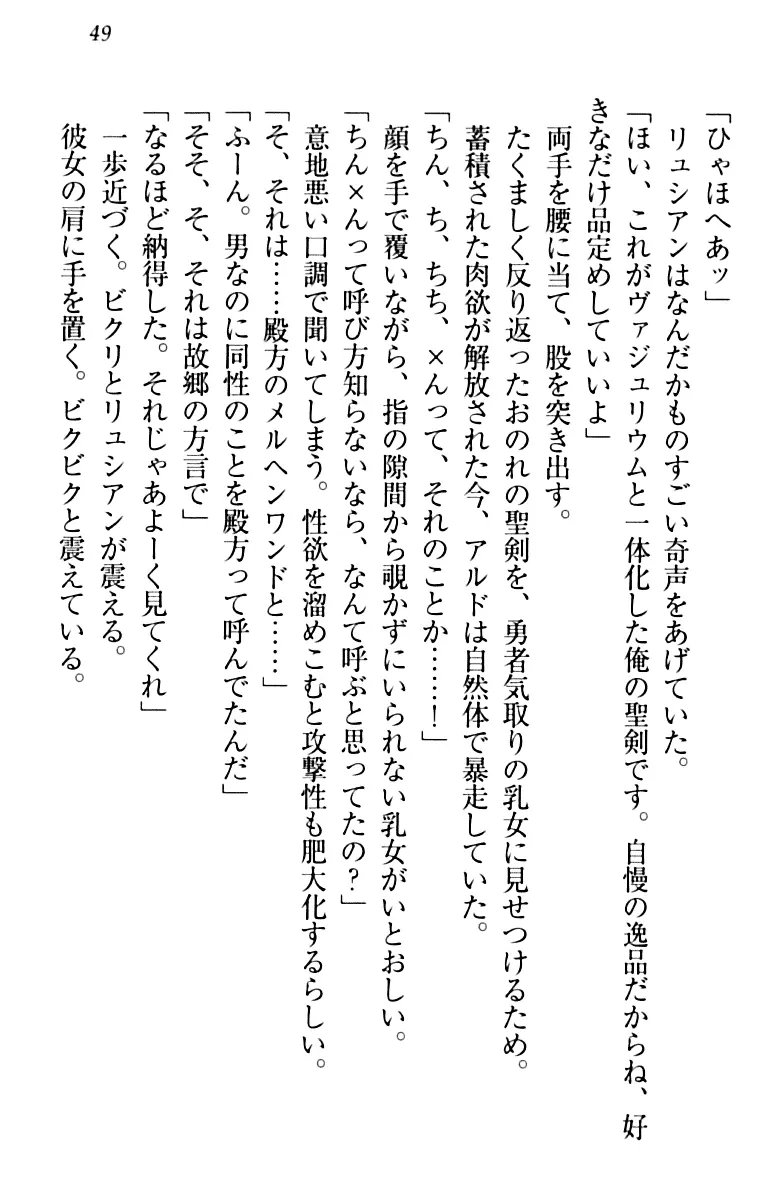 49
「ひゃほへあッ」
リュシアンはなんだかものすごい奇声をあげていた。
「ほい、これがヴァジュリウムと一体化した俺の聖剣です。自慢の逸品だからね、好
きなだけ品定めしていいよ」
両手を腰に当て、股を突き出す。
たくましく反り返ったおのれの聖剣を、勇者気取りの乳女に見せつけるため。
蓄積された肉欲が解放された今、アルドは自然体で暴走していた。
「ちん、ち、ちち、×んって、それのことか……！」
顔を手で覆いながら、指の隙間から覗かずにいられない乳女がいとおしい。
「ちん×んって呼び方知らないなら、なんて呼ぶと思ってたの？」
意地悪い口調で聞いてしまう。性欲を溜めこむと攻撃性も肥大化するらしい。
「そ、それは……殿方のメルヘンワンドと……」
「ふーん。男なのに同性のことを殿方って呼んでたんだ」
「そそ、そ、それは故郷の方言で」
「なるほど納得した。それじゃあよーく見てくれ」
一歩近づく。ビクリとリュシアンが震える。
彼女の肩に手を置く。ビクビクと震えている。